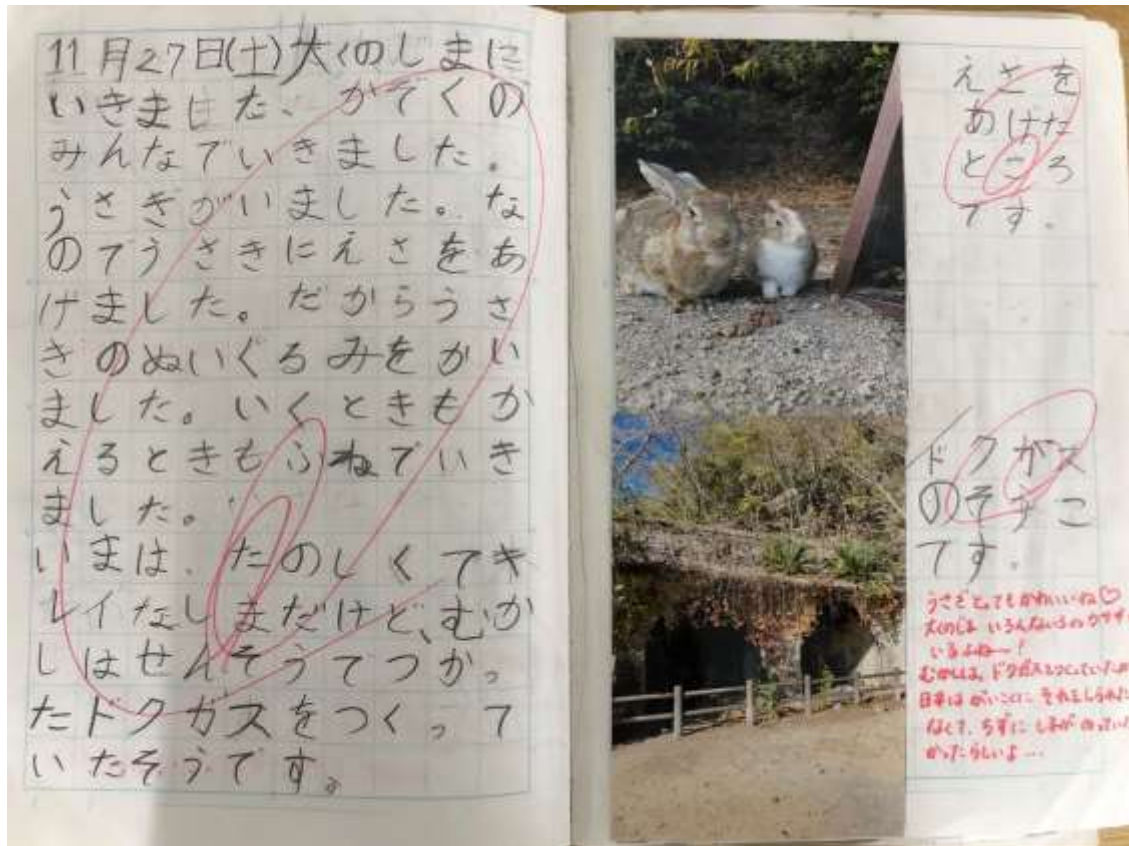 11月27日(土)大くのしまに
いきました、かぞくの
みんなでいきました。
うさぎがいました。な
のでうさきにえさをあ
げました。だからうさ
きのぬいぐるみをかい
ました。いくときもか
えるときもふねでいき
ました。
いまは、たのしくてキ
レイなしまだけど、むか
しはせんそうでつかっ
たドクガスをつくって
いたそうです。
えさを
あけた
ところ
です。
ドクガス
のそうこ
です。
うさぎとってもかわいいね♡
大くのしま いろんないろのウサギ
いるよね〜!
むかしは、ドクガスをつくっていた
日本は がいこくに それをしられた
なくて、ちずに しまが のってい
かったらしいよ…